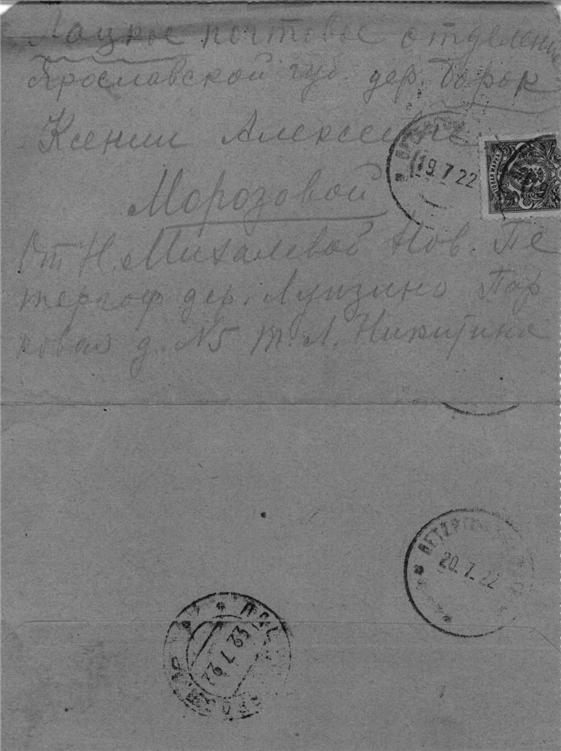 Лацкое почтовое отделение
Ярославской губ. дер. Борок
Ксении Алексеевне
19 7 22
Морозовой
От Н. Михалевой Нов. Пе
тергоф дер. Луизино Пар
ковая д. N5 т. Л. Никитина
20. 7. 22
22 7 22